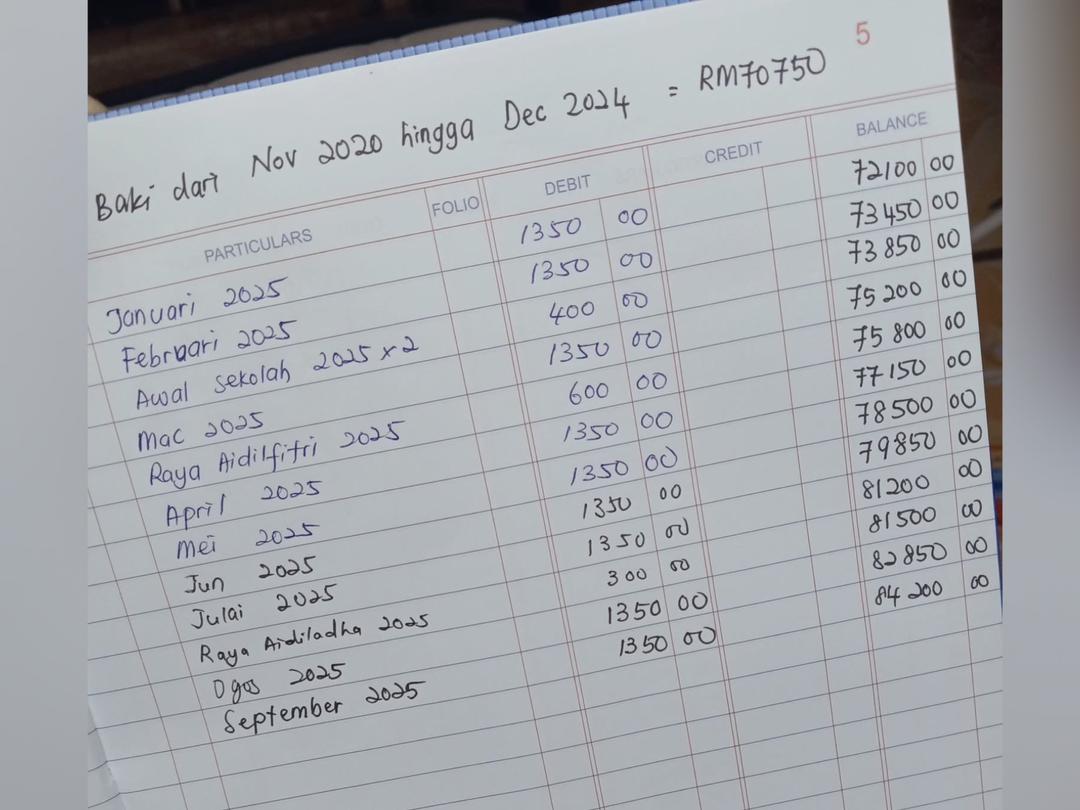 5
Baki dari Nov 2020 hingga Dec 2024 = RM70750
PARTICULARS FOLIO DEBIT CREDIT BALANCE
Januari 2025 1350 00 72100 00
Februari 2025 1350 00 73450 00
Awal sekolah 2025 x 2 400 00 73850 00
Mac 2025 1350 00 75200 00
Raya Aidilfitri 2025 600 00 75800 00
April 2025 1350 00 77150 00
Mei 2025 1350 00 78500 00
Jun 2025 1350 00 79850 00
Julai 2025 1350 00 81200 00
Raya Aidiladha 2025 300 00 81500 00
Ogos 2025 1350 00 82850 00
September 2025 1350 00 84200 00